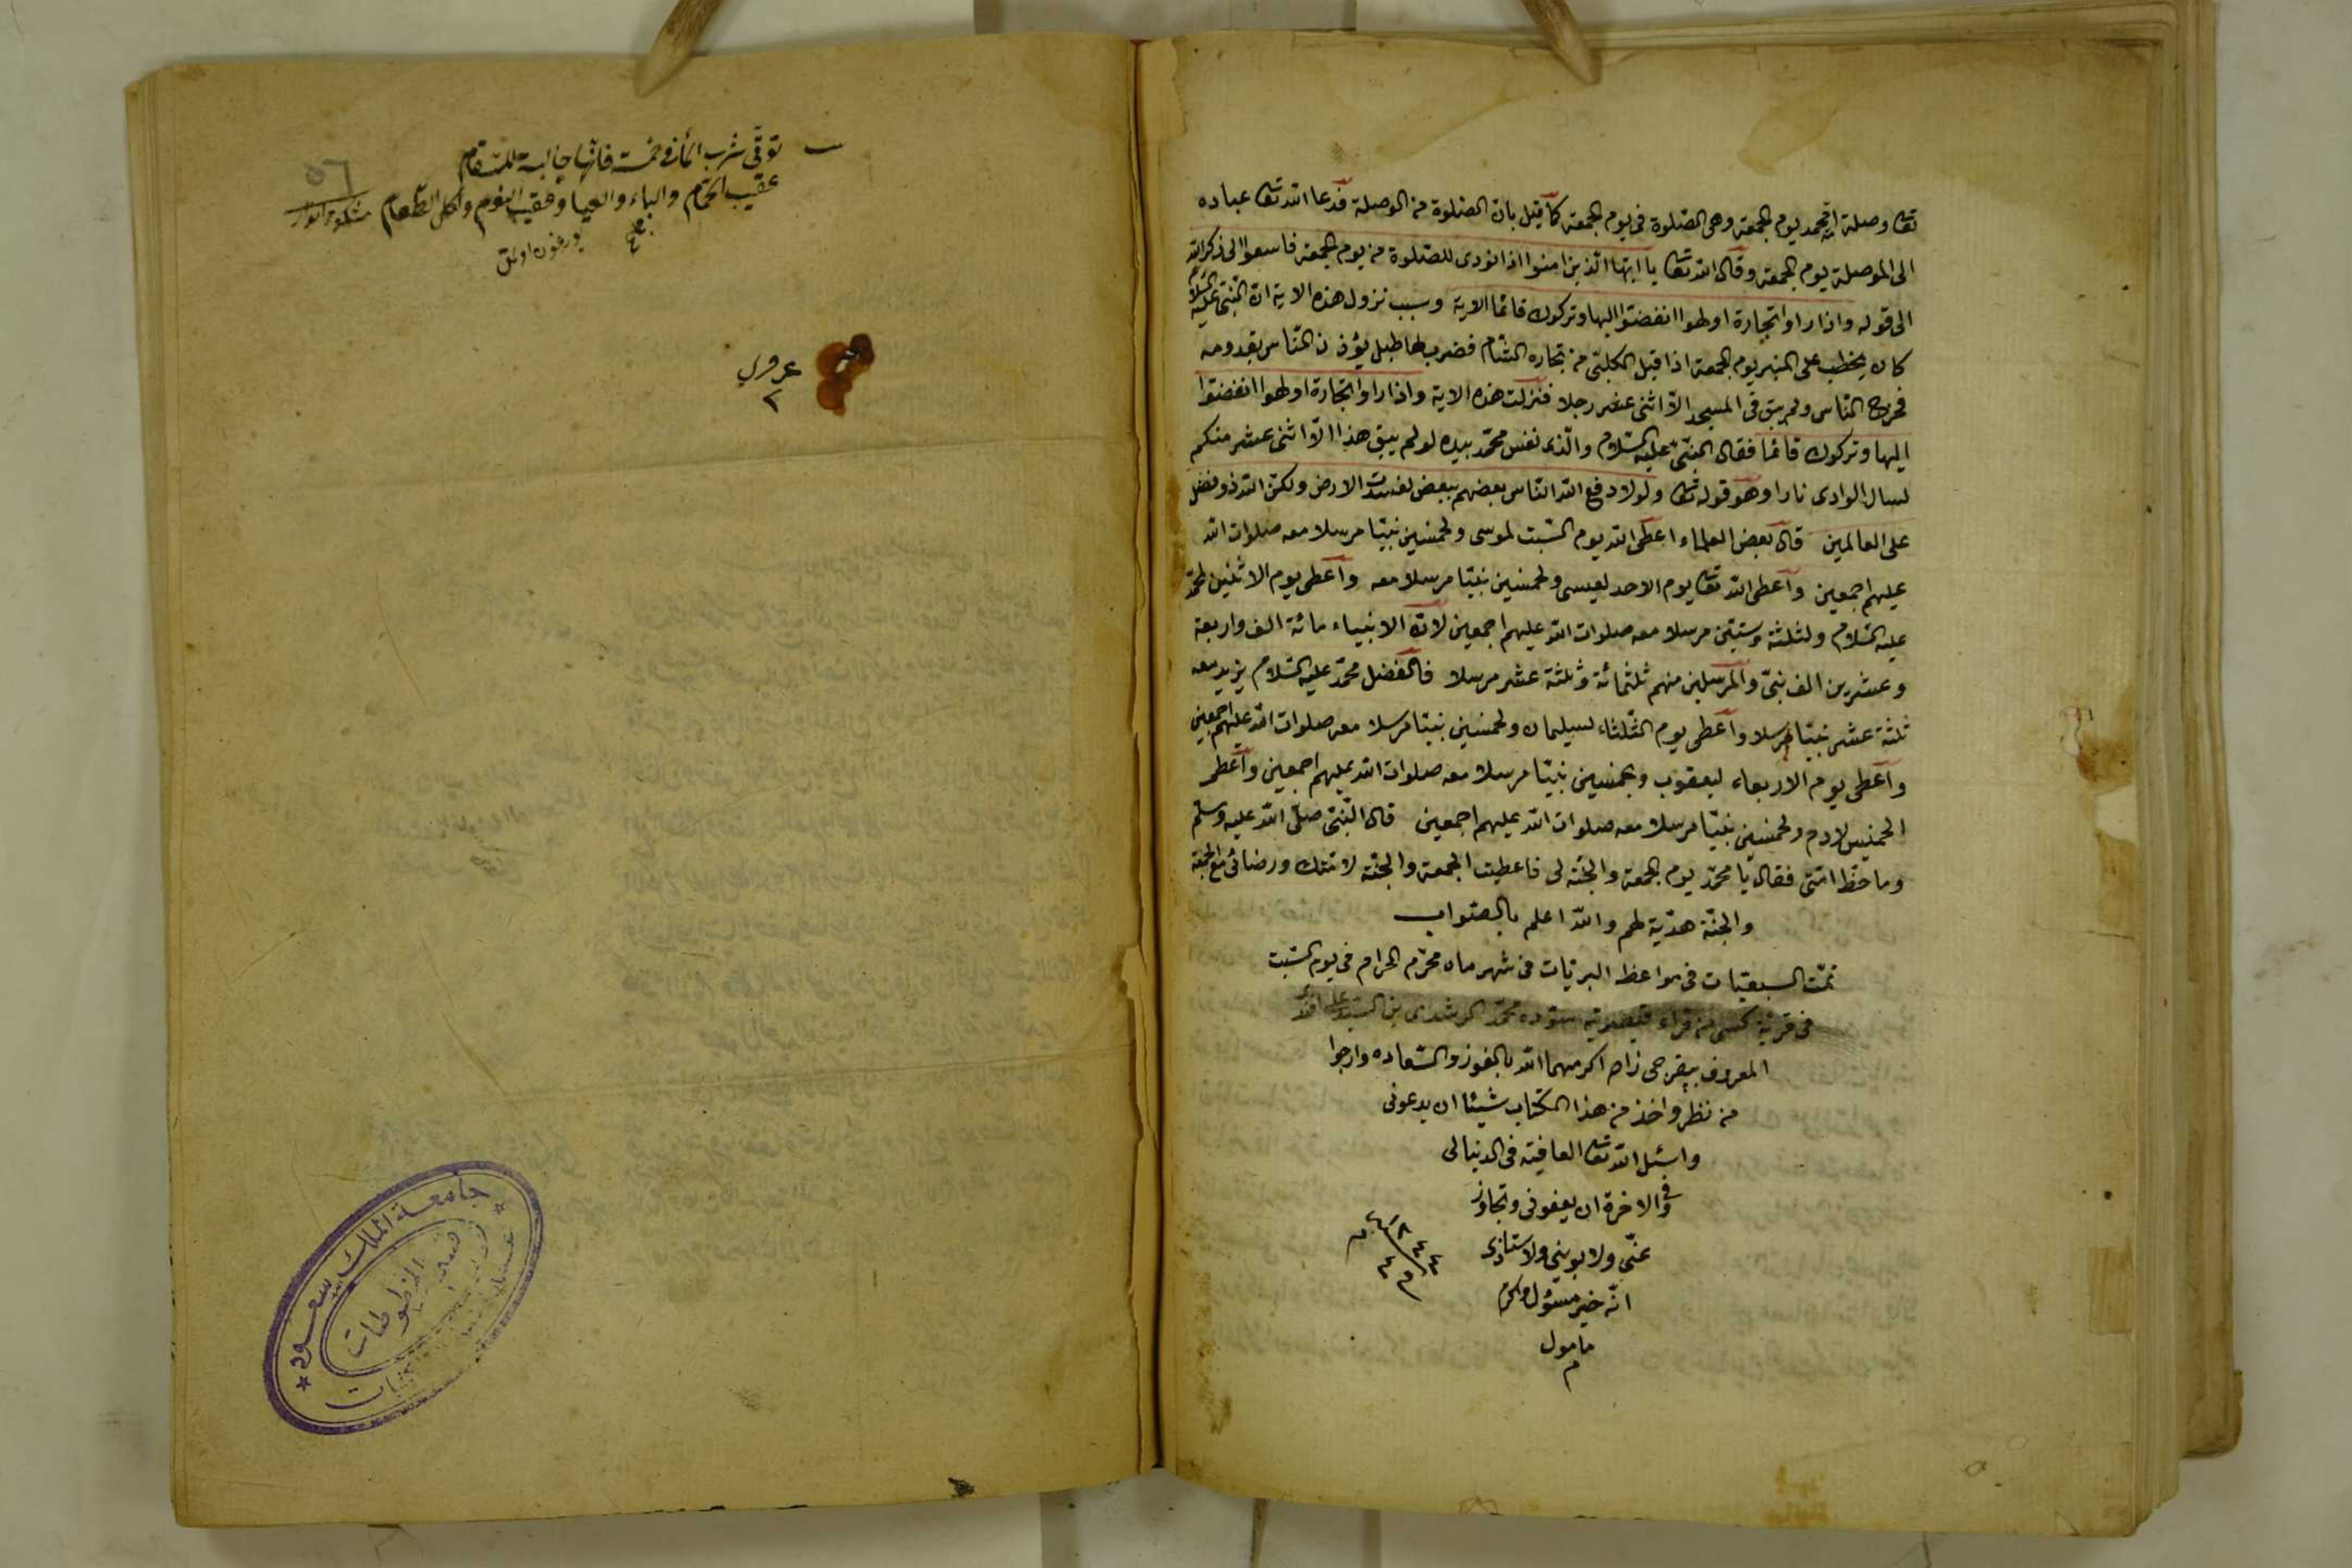 تعا وصلة لمحمد يوم الجمعة وهى الصّلوة فى يوم الجمعة كما قيل بان الصّلوة من الوصلة فدعا الله تعا عباده
الى الموصلة يوم الجمعة وقال الله تعا يا ايّها الّذين امنوا اذا نودى للصّلوة من يوم الجمعة فاسعوا الى ذكر الله
الى قوله واذا راوا تجارة او لهوا انفضّوا اليها وتركوك قائما الاية وسبب نزول هذه الاية ان النّبى عليه السّلام
كان يخطب على المنبر يوم الجمعة اذا قبل الكلبى من تجارة الشّام فضرب لها طبل يؤذن النّاس بقدومه
فخرج النّاس ولم يبق فى المسجد الّا اثنى عشر رجلا فنزلت هذه الاية واذا راوا تجارة او لهوا انفضّوا
اليها وتركوك قائما فقال النّبىّ عليه السّلام والّذى نفس محمّد بيده لو لم يبق هذا الّا اثنى عشر منكم
لسال الوادى نارا وهو قوله تعا ولولا دفع الله النّاس بعضهم ببعض لفسدت الارض ولكنّ الله ذو فضل
على العالمين قال بعض العلماء اعطى الله يوم السّبت لموسى ولخمسين نبيّا مرسلا معه صلوات الله
عليهم اجمعين واعطى الله تعا يوم الاحد لعيسى ولخمسين نبيّا مرسلا معه واعطى يوم الاثنين لمحمّد
عليه السّلام ولثلثة وستّين مرسلا معه صلوات الله عليهم اجمعين لانّ الانبياء مائة الف واربعة
وعشرين الف نبىّ والمرسلين منهم ثلثمائة وثلثة عشر مرسلا فالفضل محمّد عليه السّلام يزيد معه
ثلثة عشر نبيّا مرسلا واعطى يوم الثّلثاء لسليمان ولخمسين نبيّا مرسلا معه صلوات الله عليهم اجمعين
واعطى يوم الاربعاء ليعقوب وبخمسين نبيّا مرسلا معه صلوات الله عليهم اجمعين واعطى
الخميس لادم ولخمسين نبيّا مرسلا معه صلوات الله عليهم اجمعين قال النّبىّ صلّى الله عليه وسلّم
وما حظّ امّتى فقال يا محمّد يوم الجمعة والجنّة لى فاعطيت الجمعة والجنّة لامّتك ورضائى مع الجمعة
والجنّة هديّة لهم والله اعلم بالصّواب
تمّت السبعيات فى مواعظ البريّات فى شهر ماه محرّم الحرام فى يوم السّبت
فى قرية من قراء محمّد الرشدى بن السيّد على افندى
المعروف اكرمهما الله بالفوز والسّعاده وارجوا
من نظر واخذ من هذا الكتاب شيئا ان يدعونى
واسئل الله تعا العافية فى الدنيا لى
وفى الاخرة ان يعفونى وتجاوز
عنّى ولابوينى ولاستاذى
انّه خير مسئول واكرم
مامول
م
توقّى شرب الماء فى خمسة فانّها جالبة للسّقام
عقيب الحمّام والباء والعيا وعقيب النوم واكل الطّعام
٥٦
جامعة الملك سعود
قسم المخطوطات